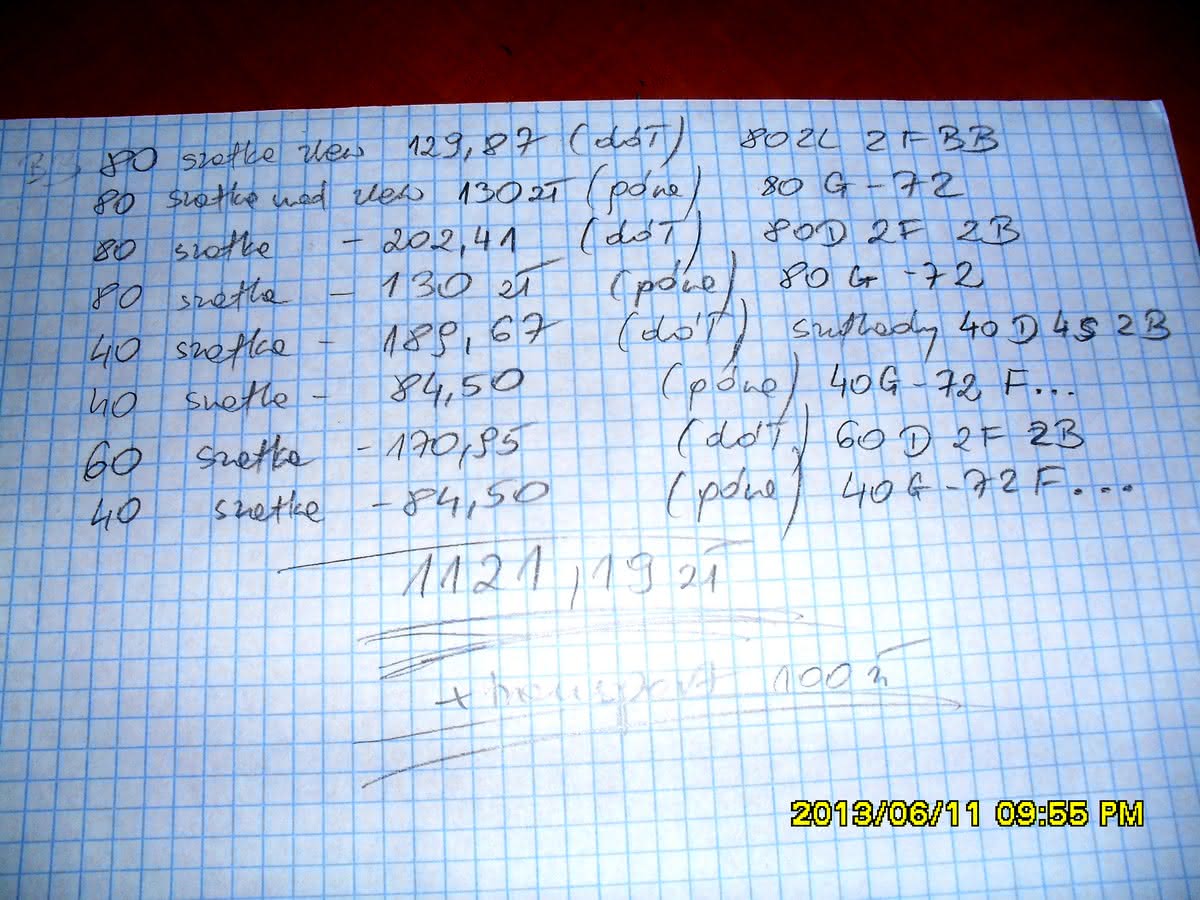 80 szafka zlew 129,87 (dół) 80ZL 2F BB
80 szafka nad zlew 130zł (górna) 80 G-72
80 szafka - 202,41 (dół) 80D 2F 2B
80 szafka - 130 zł (górna) 80 G-72
40 szafka - 189,67 (dół) szuflady 40 D 4S 2B
40 szafka - 84,50 (górna) 40G-72 F...
60 szafka - 170,95 (dół) 60 D 2F 2B
40 szafka - 84,50 (górna) 40G-72F....
1121,19 zł
+ transport 100 zł
2013/06/11 09:55 PM